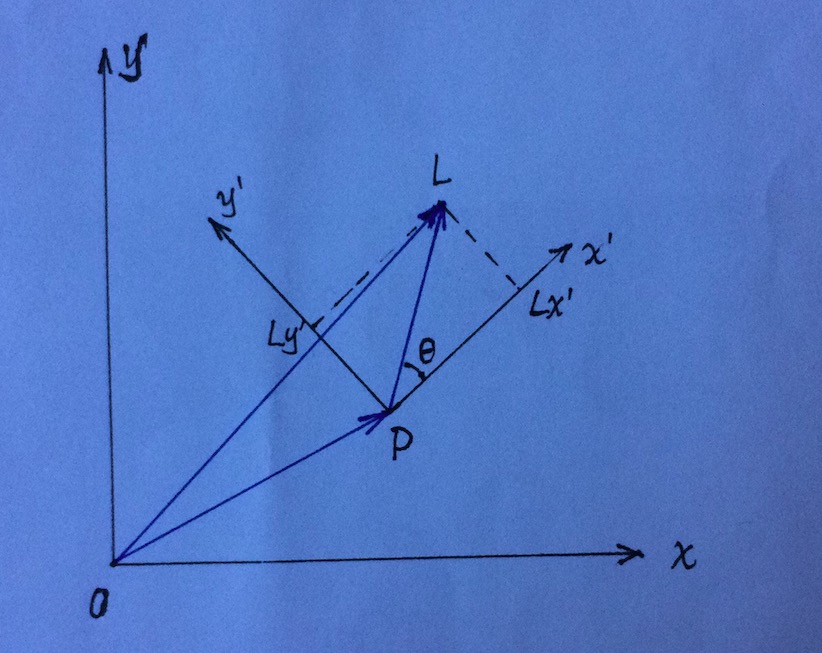 y
L
y'
x'
Lx'
Ly'
θ
P
x
O